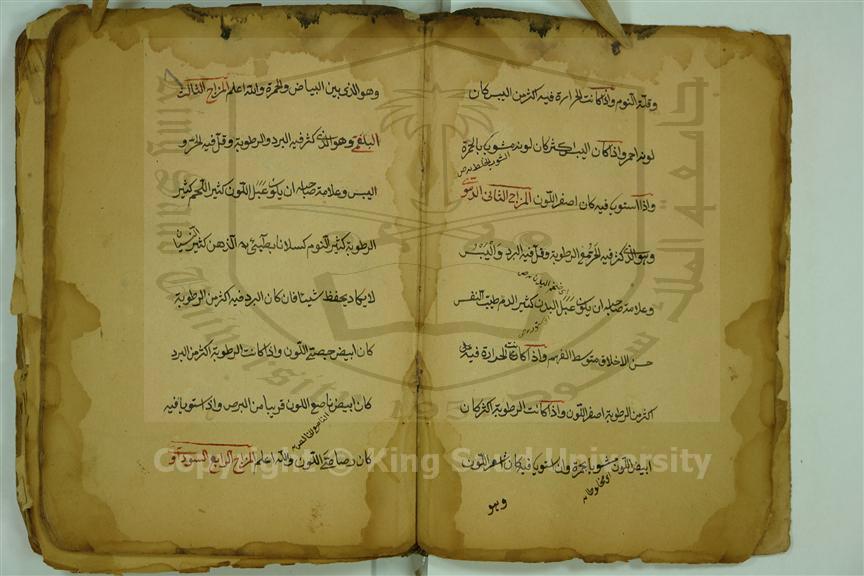 وقلة النوم واذا كانت الحرارة فيه اكثر من اليبس كان
لونه احمر واذا كان اليبس اكثر كان لونه مشوب بالحمرة
واذا استويا فيه كان اصفر اللون المزاج الثاني الدموي
وهو الذي كثر فيه الحر والرطوبة وقل فيه البرد واليبس
وعلامة صاحبه ان يكون عبل البدن كثير الدم طيب النفس
حسن الاخلاق متوسط الفهم واذا كانت الحرارة فيه
اكثر من الرطوبة اصفر اللون واذا كانت الرطوبة اكثر كان
ابيض اللون مشوبا بحمرة وان استويا فيه كان اللون
وهو
وهو الذي بين البياض والحمرة والله اعلم المزاج الثالث
البلغمي وهو الذي كثر فيه البرد والرطوبة وقل فيه الحر و
اليبس وعلامة صاحبه ان يكون عبل اللون كثير اللحم كثير
الرطوبة كثير النوم كسلانا بطيئ الذهن كثير النسيان
لا يكاد يحفظ شيئا فان كان البرد فيه اكثر من الرطوبة
كان ابيض جصي اللون واذا كانت الرطوبة اكثر من البرد
كان ابيض ناصع اللون قريبا من البرص واذا استويا فيه
كان رصاصي اللون والله اعلم المزاج الرابع السوداو
جامعة الملك سعود
King Saud University
1957
Copyright © King Saud University